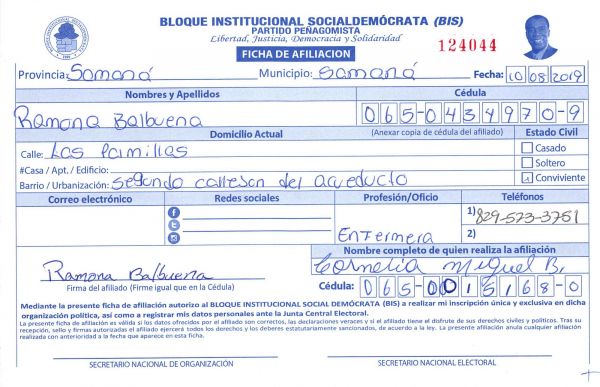 BLOQUE INSTITUCIONAL SOCIALDEMÓCRATA (BIS)
PARTIDO PEÑAGOMISTA
Libertad, Justicia, Democracia y Solidaridad
FICHA DE AFILIACION
124044
Provincia: Samaná Municipio: Samaná Fecha: 10/08/2019
Nombres y Apellidos Cédula
Ramona Balbuena 065-0434970-9
Domicilio Actual (Anexar copia de cédula del afiliado) Estado Civil
Calle: Las Palmillas Casado
#Casa / Apt. / Edificio: Soltero
Barrio / Urbanización: segundo calleson del aqueducto Conviviente
Correo electrónico Redes sociales Profesión/Oficio Teléfonos
1) 829-573-3751
Enfermera 2)
Nombre completo de quien realiza la afiliación
Ramona Balbuena Cornelia Miguel B.
Firma del afiliado (Firme igual que en la Cédula) Cédula: 065-0015168-0
Mediante la presente ficha de afiliación autorizo al BLOQUE INSTITUCIONAL SOCIAL DEMÓCRATA (BIS) a realizar mi inscripción única y exclusiva en dicha
organización política, así como a registrar mis datos personales ante la Junta Central Electoral.
La presente ficha de afiliación es válida si los datos ofrecidos por el afiliado son correctos, las declaraciones veraces y si el afiliado tiene el disfrute de sus derechos civiles y políticos. Tras su
recepción, sello y firmas autorizadas el afiliado ejercerá todos los derechos y los deberes estatutariamente sancionados, de acuerdo a la ley. La presente afiliación anula cualquier afiliación
realizada con anterioridad a la fecha que aparece en esta ficha.
SECRETARIO NACIONAL DE ORGANIZACIÓN SECRETARIO NACIONAL ELECTORAL